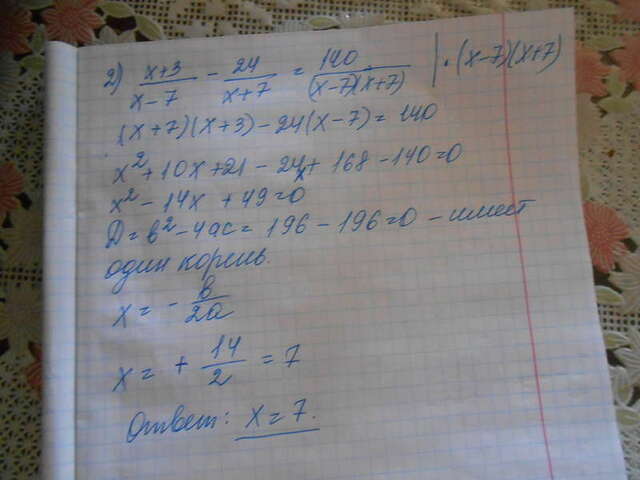 2) (x+3)/(x-7) - 24/(x+7) = 140/((x-7)(x+7)) | · (x-7)(x+7)
(x+7)(x+3) - 24(x-7) = 140
x² + 10x + 21 - 24x + 168 - 140 = 0
x² - 14x + 49 = 0
D = b² - 4ac = 196 - 196 = 0 - имеет
один корень.
x = - b/2a
x = + 14/2 = 7
Ответ: x = 7.